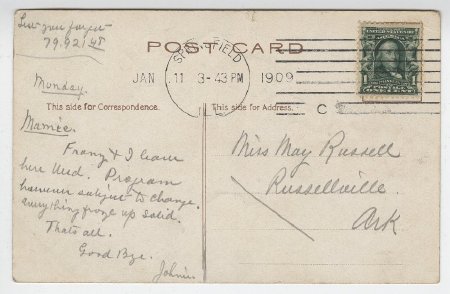 Lest you forget
79.92
POST CARD
SPRINGFIELD
JAN 11 3-43 PM 1909
ILL
C
1
Monday.
This side for Correspondence.
This side for Address.
Mamie.
Franz & I leave
here Wed. Program
however subject to change.
everything froze up solid.
Thats all.
Good Bye.
Johnie.
Miss May Russell
Russellville.
Ark